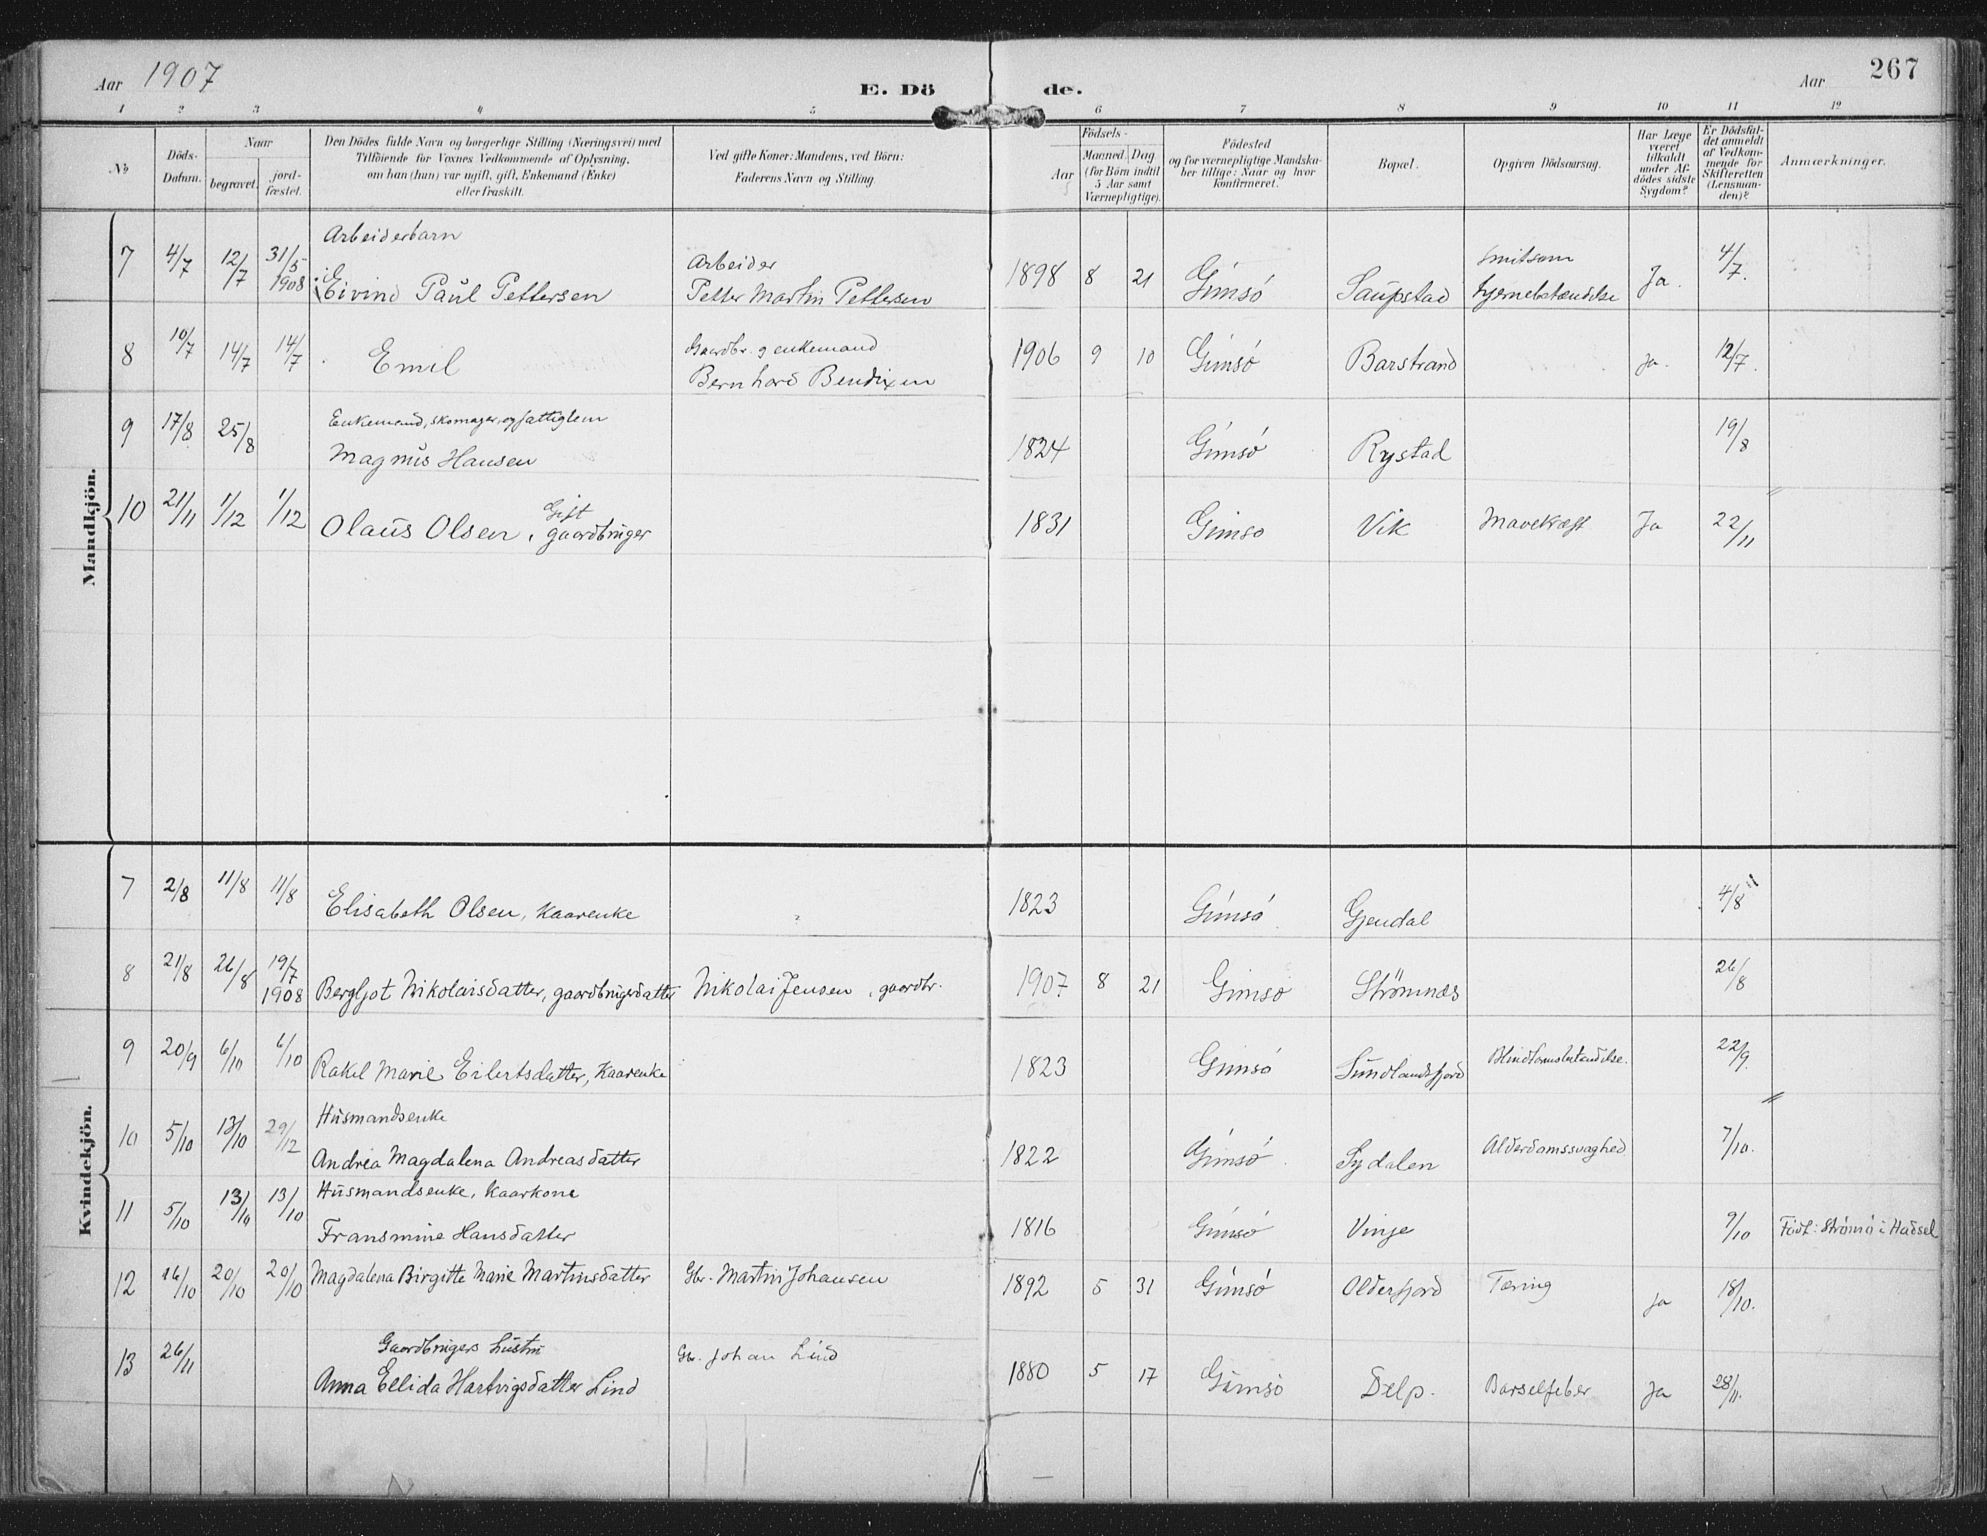 Aar 1907 E. Dö de. Aar 267
1 2 3 4 5 6 7 8 9 10 11 12
No
Döds-Datum.
Naar
begravet.
jord-fæstet.
Den Dödes fulde Navn og borgerlige Stilling (Næringsvei) med
Tilföiende for Voxnes Vedkommende af Oplysning,
om han (hun) var ugift, gift, Enkemand (Enke)
eller fraskilt.
Ved gifte Koner: Mandens, ved Börn:
Faderens Navn og Stilling
Födsels-
Aar
Maaned. Dag
(for Börn indtil
5 Aar samt
Værnepligtige).
Födested
og for værnepligtige Mandska-
ber tillige: Naar og hvor
konfirmeret.
Bopæl.
Opgiven Dödsaarsag.
Har Læge
været
tilkaldt
under Af-
dödes sidste
Sygdom?
Er Dödsfal-
det anmeldt
af Vedkom-
mende for
Skifteretten
(Lensman-
den)?
Anmærkninger.
Mandkjön.
Arbeiderbarn
7 4/7 12/7 31/5 1908 Eivind Paul Pettersen Arbeider Petter Martin Pettersen 1898 8 21 Gimsö Saupstad smitsom hjernebetændelse Ja. 4/7.
8 10/7 14/7 14/7 Emil Gaardbr. og enkemand Bernhard Bendixen 1906 9 10 Gimsö Barstrand ja. 12/7.
Enkemand, skomager, og fattiglem
9 17/8 25/8 Magnus Hansen 1824 Gimsö Rystad 19/8
10 21/11 1/12 1/12 Olaus Olsen, Gift gaardbruger 1831 Gimsø Vik Mavekræft Ja 22/11
Kvindekjön.
7 2/8 11/8 11/8 Elisabeth Olsen, Kaarenke 1823 Gimsö Gjendal 4/8
8 21/8 26/8 19/7 1908 Bergljot Nikolaisdatter, gaardbrugerdatter Nikolai Jensen, gaardbr. 1907 8 21 Gimsö Strömnæs 26/8
9 20/9 6/10 6/10 Rakel Marie Eilertsdatter, Kaarenke 1823 Gimsö Sundlandsfjord Blindtarmsbetændelse. 22/9.
Husmandsenke
10 5/10 13/10 29/12 Andrea Magdalena Andreasdatter 1822 Gimsö Sydalen Alderdomssvaghed 7/10.
Husmandsenke, Kaarkone
11 5/10 13/10 13/10 Fransmine Hansdatter 1816 Gimsö Vinje 9/10 Födt: Strömö i Hadsel
12 16/10 20/10 20/10 Magdalena Birgitte Marie Martinsdatter Gbr. Martin Johansen 1892 5 31 Gimsö Olderfjord Tæring ja 18/10.
Gaardbrugers hustru
13 26/11 Anna Ellida Hartvigsdatter Lind Gbr. Johan Lind 1880 5 17 Gimsö Delp. Barselfeber Ja 28/11.